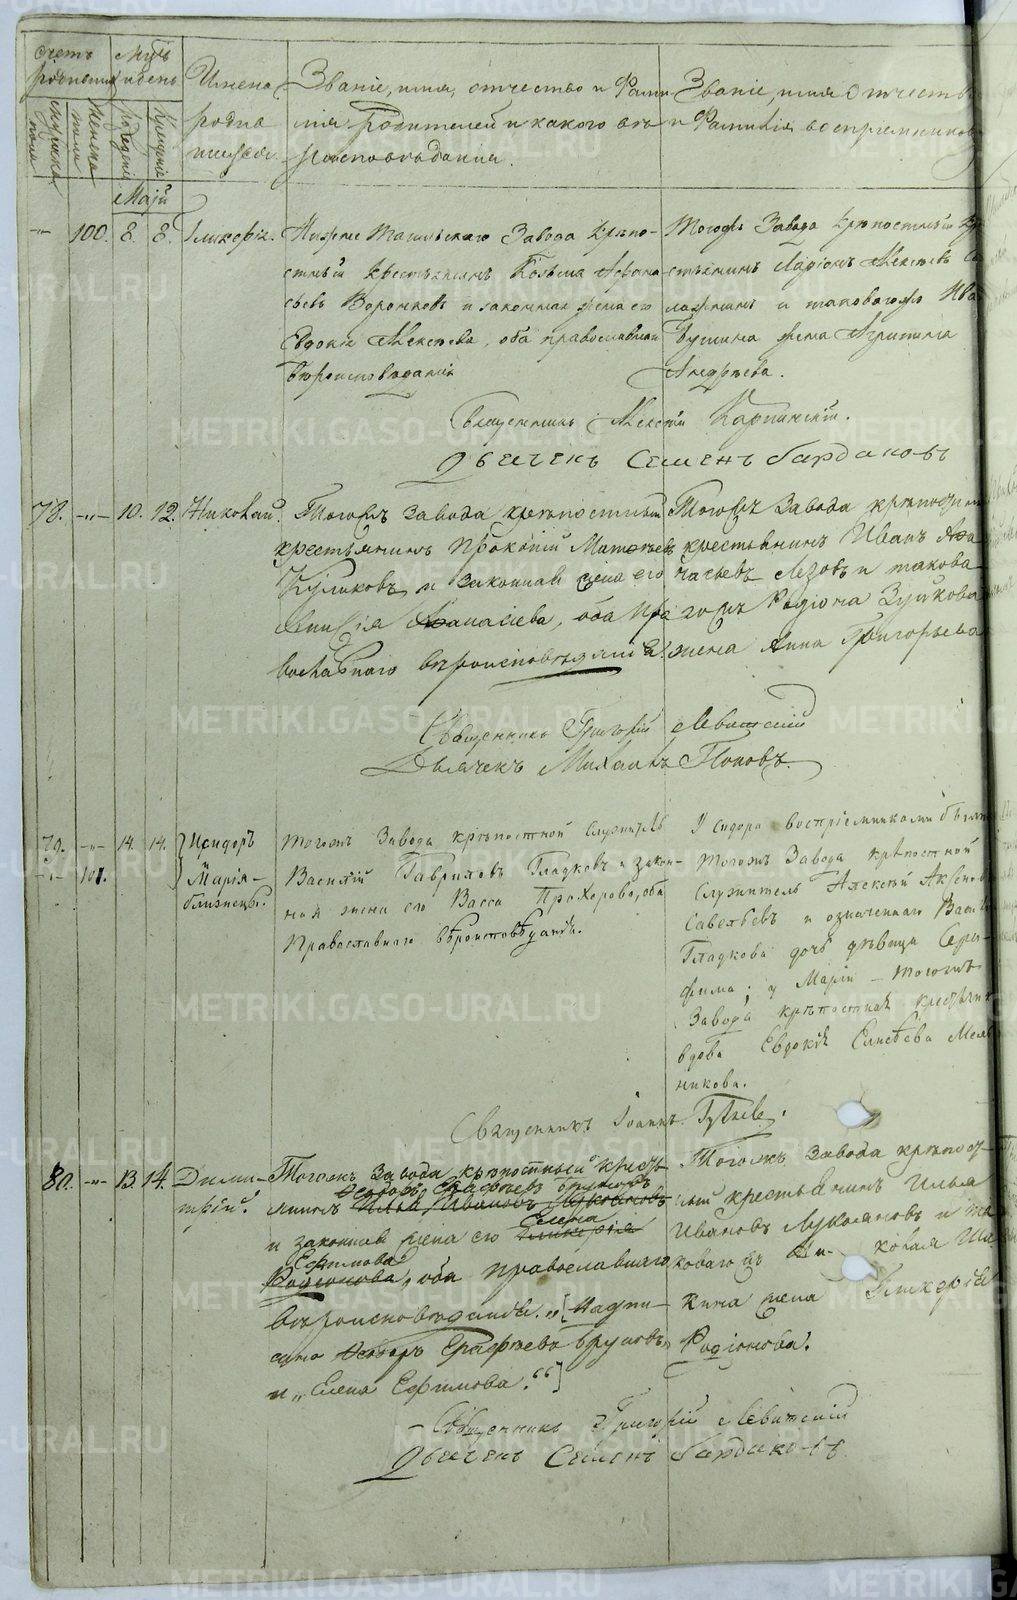 Счетъ родившихся
Мѣсяцъ и день
Имена родившихся
Званіе, имя, отчество и Фамилія Родителей и какого вѣроисповѣданія.
Званіе, имя Отчество и Фамилія воспріемниковъ
мужеска пола
женска пола
рожденія
крещенія
Май
-"- 100. 8. 8. Гликерія.
Нижне Тагильскаго Завода крѣпо-
стный крестьянинъ Козьма Афана
сьевъ Воронковъ и законная жена его
Евдокія Алексѣева, оба православнаго
вѣроисповѣданія
Тогожъ Завода крѣпостный кре
стьянинъ Ларіонъ Алексѣевъ
и таковагожъ Ива
жена Агрипина
Андрѣева.
Священникъ Алексѣй Карпинскій.
Дьячекъ Семенъ Бардаковъ
78. -"- 10. 12. Николай.
Тогожъ Завода крѣпостный
крестьянинъ Прокопій Матвѣевъ
Куликовъ и законная жена его
Афанасіева, оба пра
вославнаго вѣроисповѣданія.
Тогожъ Завода крѣпостный
крестьянинъ Иванъ Афа
насьевъ и такова
гожъ Родіона Зуйкова
жена Анна Григорьева
Священникъ Григорій Левитскій
Дьячекъ Михаилъ Поповъ.
79. -"- 14. 14. Исидоръ
-"- 101. Марія -
близнецы.
тогожъ Завода крѣпостной служитель
Василій Гавриловъ Гладковъ и закон-
ная жена его Васса Прохорова, оба
Православнаго вѣроисповѣданія.
У Сидора воспріемниками были
тогожъ Завода крѣпостной
служитель Алексѣй Аксенов
Савельевъ и означеннаго Васил
Гладкова дочь дѣвица Сера-
фима; у Маріи - тогожъ
Завода крѣпостная крестьянк
вдова Евдокія Елисѣева Мель
никова.
Священникъ Іоаннъ
80. -"- 13. 14. Дими-
трій.
Тогожъ Завода крѣпостный кресть
Ѳедоръ Ерафѣевъ Бруновъ
янинъ Илья Ивановъ Лукояновъ
Елена
и законная жена его Гликерія
Ефимова
Родіонова, оба православнаго
вѣроисповѣданія. „[Надпи-
сано Ѳедоръ Ерафѣевъ Бруновъ„
и „Елена Ефимова.“]
Тогожъ Завода крѣпост
ный крестьянинъ Илья
Ивановъ Лукояновъ и та
ковагожъ
жена Гликерія
Родіонова.
Священникъ Григорій Левитскій
Дьячекъ Семенъ Бардаковъ
METRIKI.GASO-URAL.RU